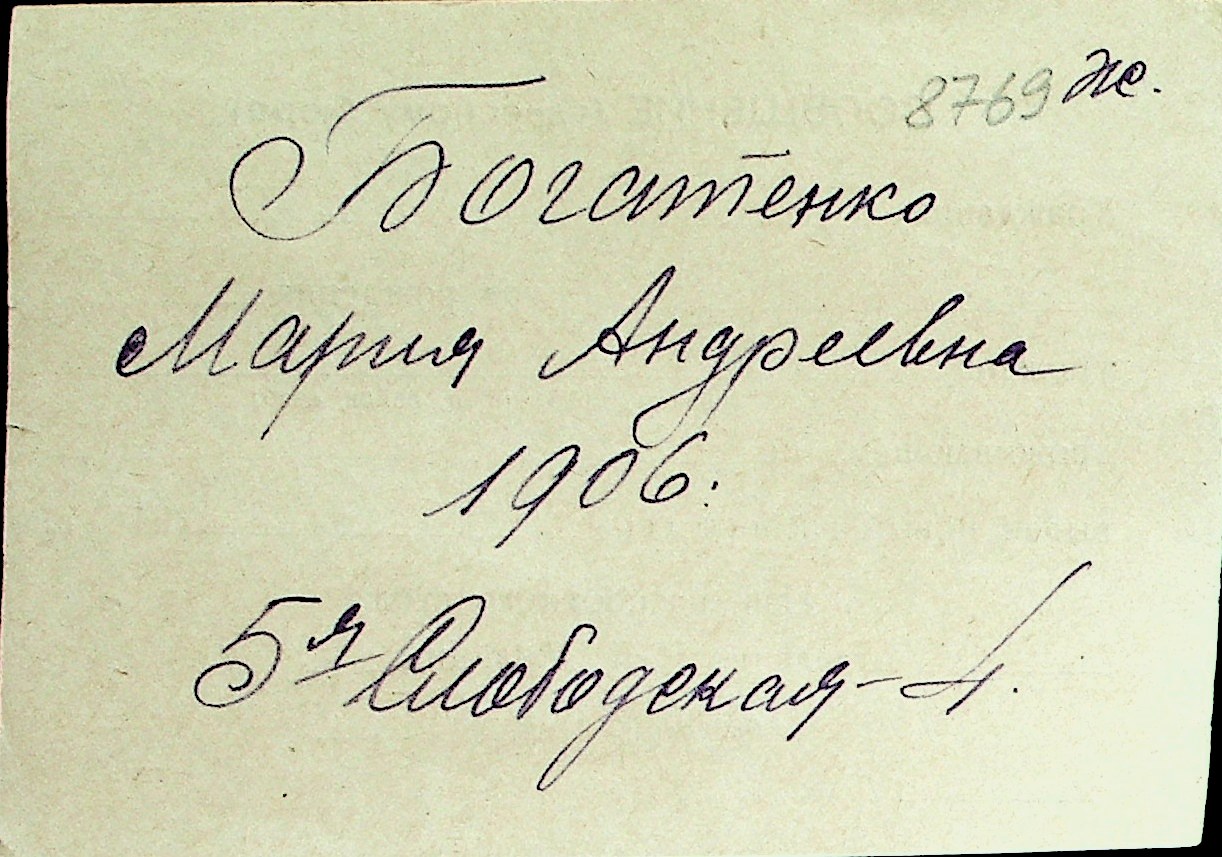 8769 ж.
Богатенко
Мария Андреевна
1906.
5я Слободская - 4.